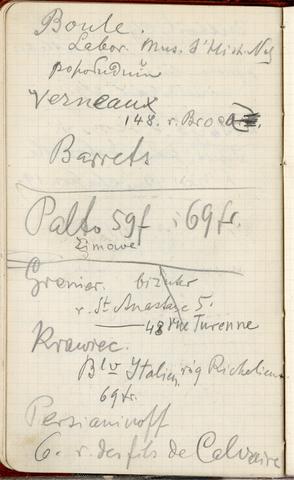 Boule.
Labor. Mus. d'Hist. Nat
popołudniu
Verneaux
148. r. Broca
Barrets
Palto 59f i 69fr.
Zimowe
Grenier. bizuter
r. St Anastase 5.
48 rue Turenne
Krawiec.
Blv Italien róg Richelieu
69 fr.
Persianinoff
6. r. des fils de Calvaire